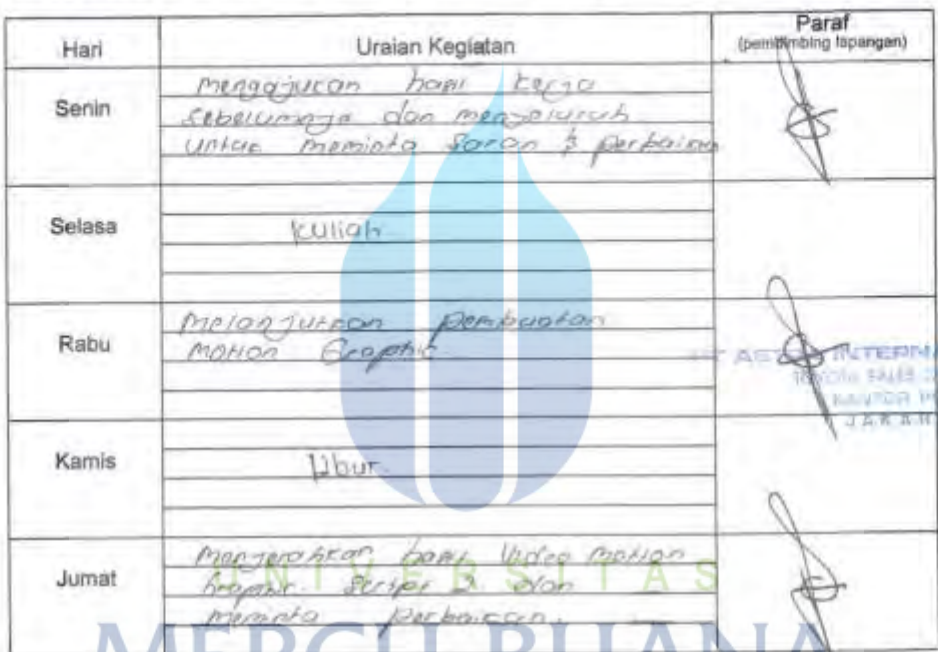 Hari Uraian Kegiatan Paraf
(pembimbing lapangan)
Senin
mengajukan hasil kerja
sebelumnya dan menyeluruh
untuk meminta saran & perbaikan
Selasa
kuliah
Rabu
melanjutkan pembuatan
motion Graphic
INTERNA
JAKAR
Kamis
libur
Jumat
menyerahkan hasil video motion
graphic script 2 dan
meminta perbaikan.
UNIVERSITAS
MERCU BUANA